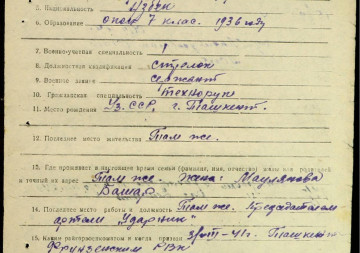 5. Национальность Узбек
6. Образование окон 7 клас. 1936 году
7. Военно-учетная специальность 1
8. Должностная квалификация стрелок
9. Военное звание сержант
10. Гражданская специальность Технорук
11. Место рождения Уз. ССР, г. Ташкент.
12. Последнее место жительства Там же.
13. Где проживает в настоящее время семья (фамилия, имя, отчество) жены или
и точный их адрес Там же. Жена: Маулянова
Башар
14. Последнее место работы и должность Там же. Председателем
артели "Ударник"
15. Каким райвоенкоматом и когда призван -41г. Ташкент
Фрунзенским РВК